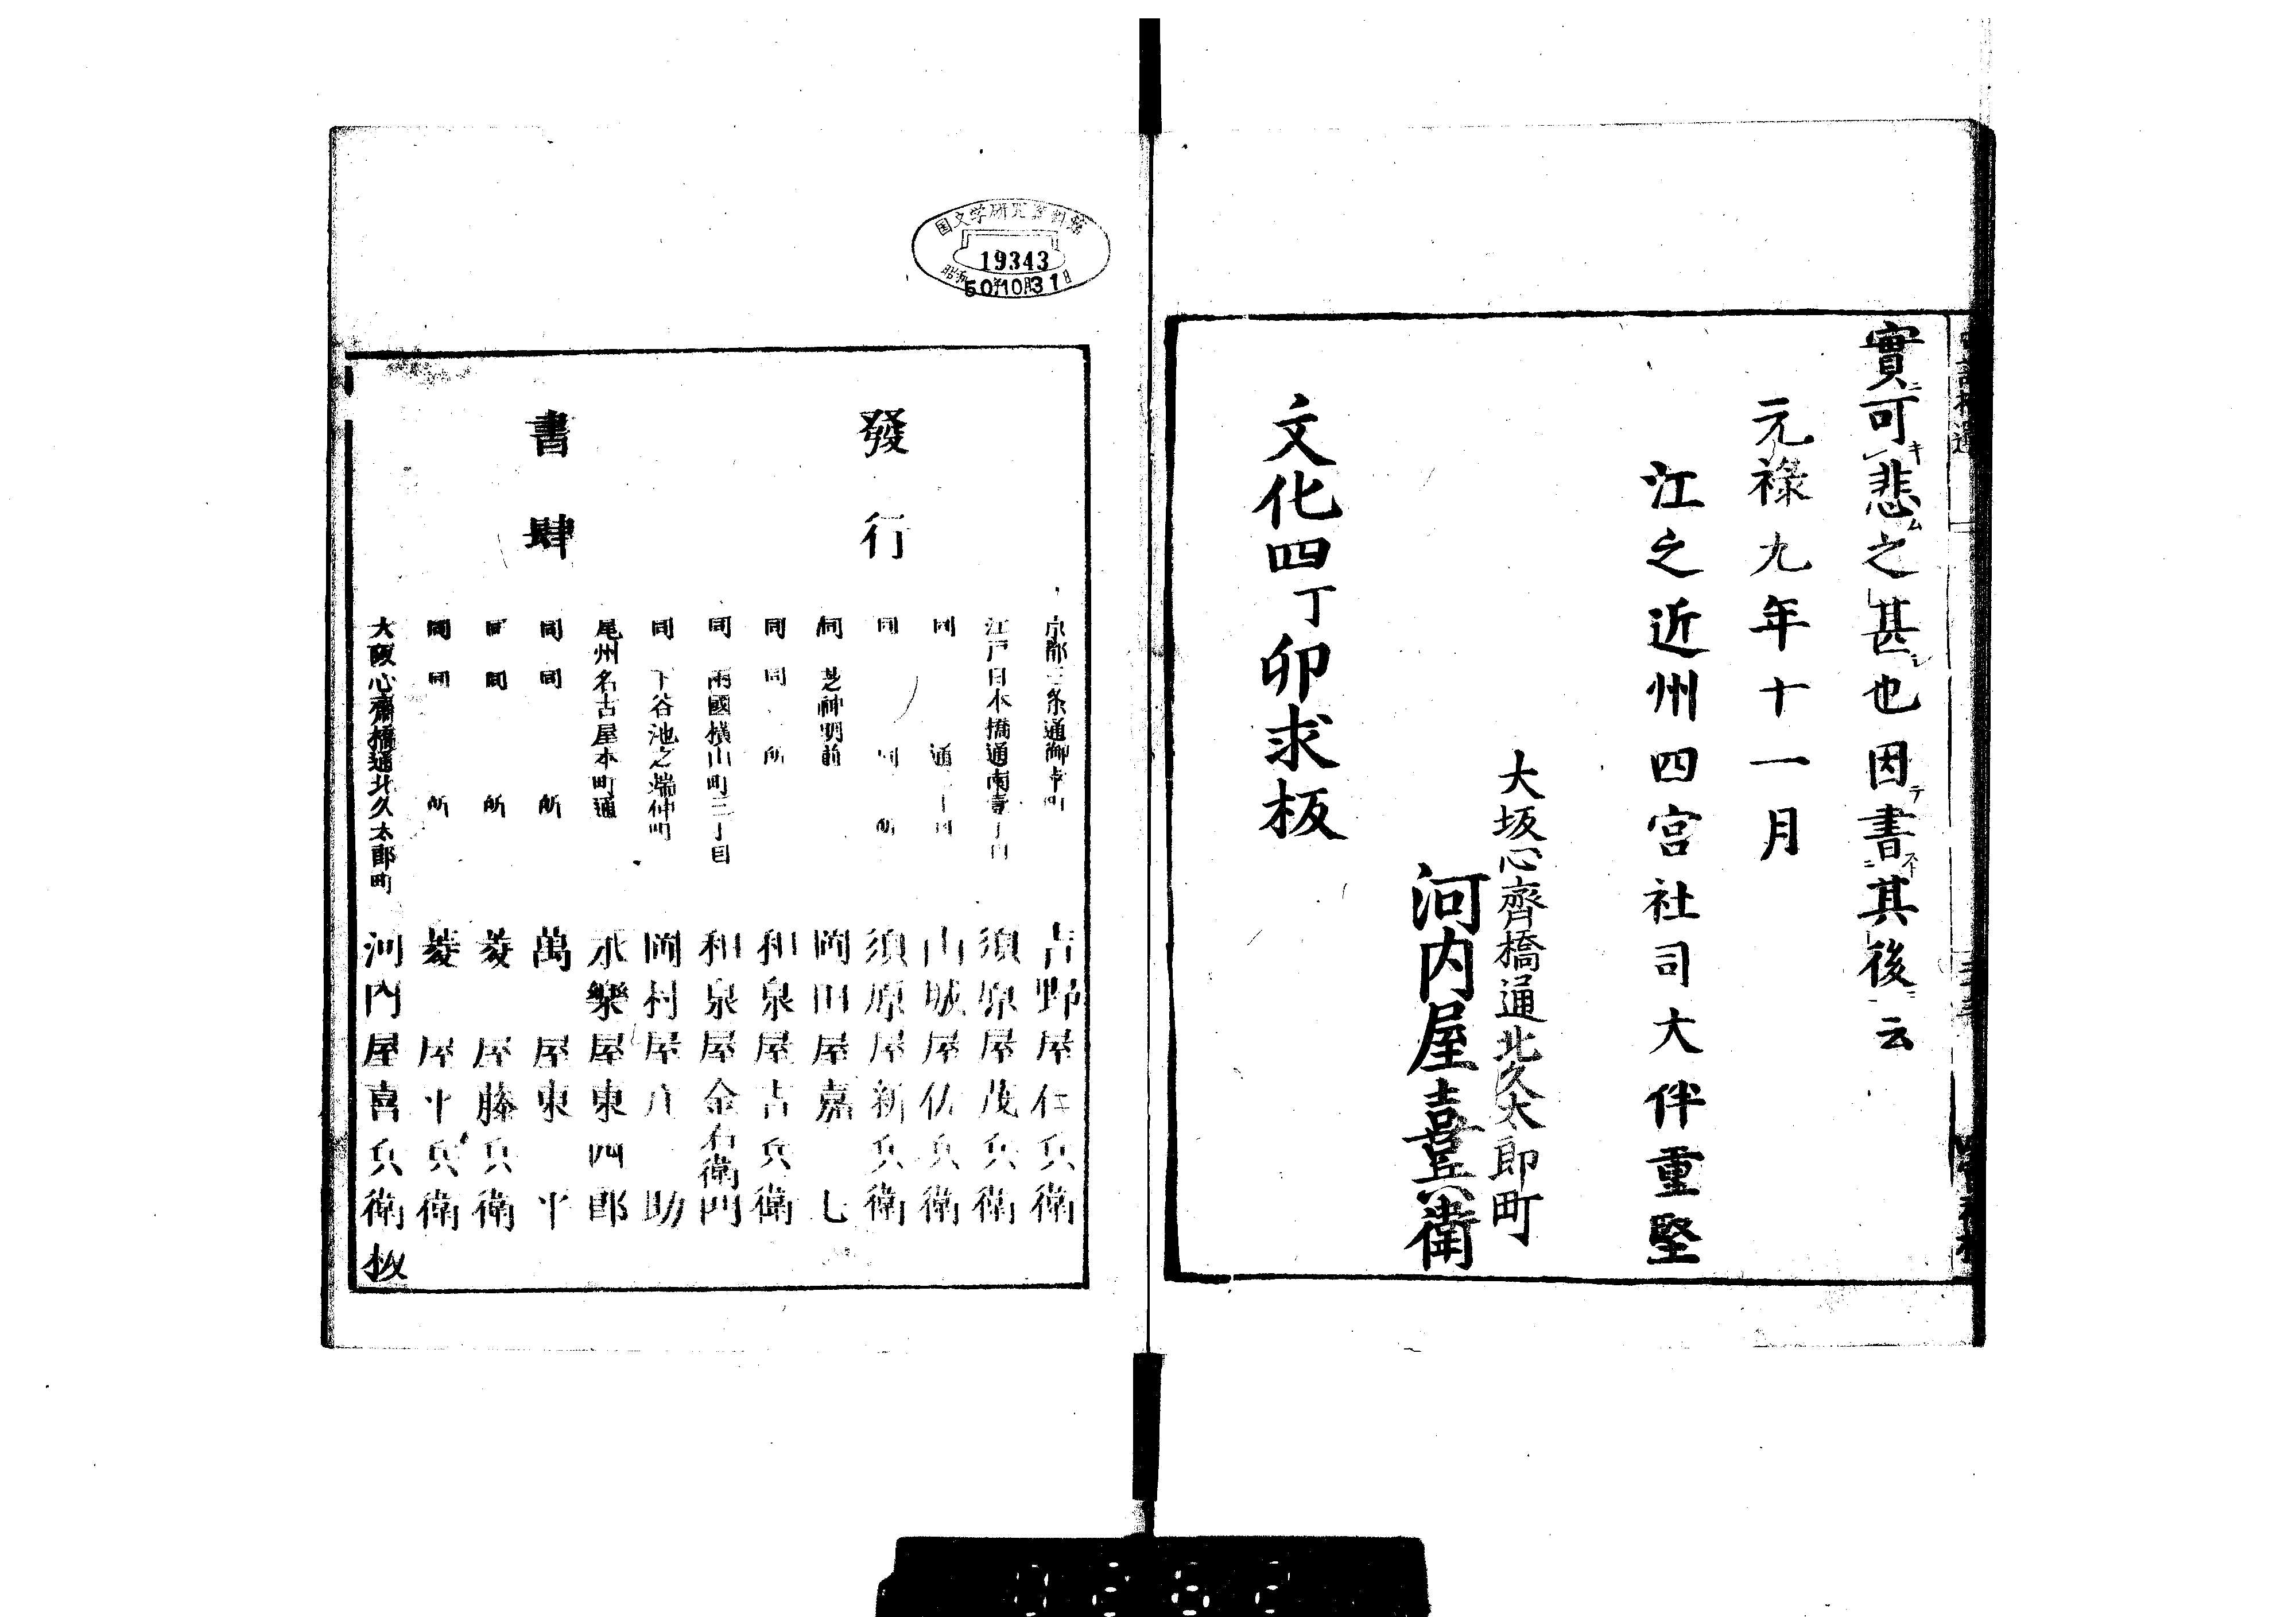 實ニ可キレ悲ム之甚シ也因テ書スト其後ニ云
元祿九年十一月
江之近州四宮社司大伴重堅
大坂心齊橋通北久太郎町
河内屋喜兵衛
文化四丁卯求板
国文学研究資料館
19343
昭和50年10月31日
發行
書肆
京都三条通御幸町 吉野屋仁兵衛
江戸日本橋通南壹丁目 須原屋茂兵衛
同 通 丁目 山城屋佐兵衛
同 同 所 須原屋新兵衛
同 芝神明前 岡田屋嘉七
同 同 所 和泉屋吉兵衛
同 兩國橫山町三丁目 和泉屋金右衛門
同 下谷池之端仲町 岡村屋庄助
尾州名古屋本町通 永樂屋東四郎
同 同 所 萬屋東平
同 同 所 菱屋藤兵衛
同 同 所 菱屋平兵衛
大阪心齋橋通北久太郎町 河内屋喜兵衛板